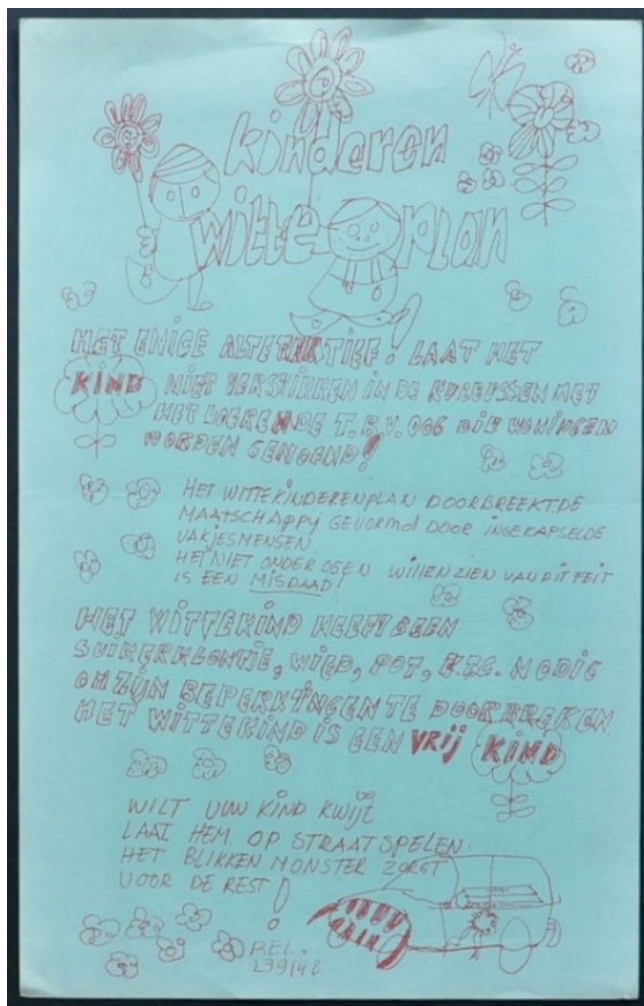 kinderen
witte plan
HET ENIGE ALTERNATIEF! LAAT HET
KIND NIET VERSTIKKEN IN DE KUBUSSEN MET
HET LOERENDE T.B.V. OOG DIE WONINGEN
WORDEN GENOEMD!
HET WITTEKINDERENPLAN DOORBREEKT DE
MAATSCHAPPY GEVORMD DOOR INGEKAPSELDE
VAKJESMENSEN
HET NIET ONDER OGEN WILLEN ZIEN VAN DIT FEIT
IS EEN MISDAAD!
HET WITTEKIND HEEFT GEEN
SUIKERKLONTJE, WIED, POT, E.T.C. NODIG
OM ZIJN BEPERKINGEN TE DOORBREKEN
HET WITTEKIND IS EEN VRIJ KIND
WILT UW KIND KWIJT
LAAT HEM OP STRAAT SPELEN.
HET BLIKKEN MONSTER ZORGT
VOOR DE REST!
BEL.
239148